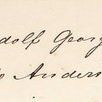 dolf Georg
Anders